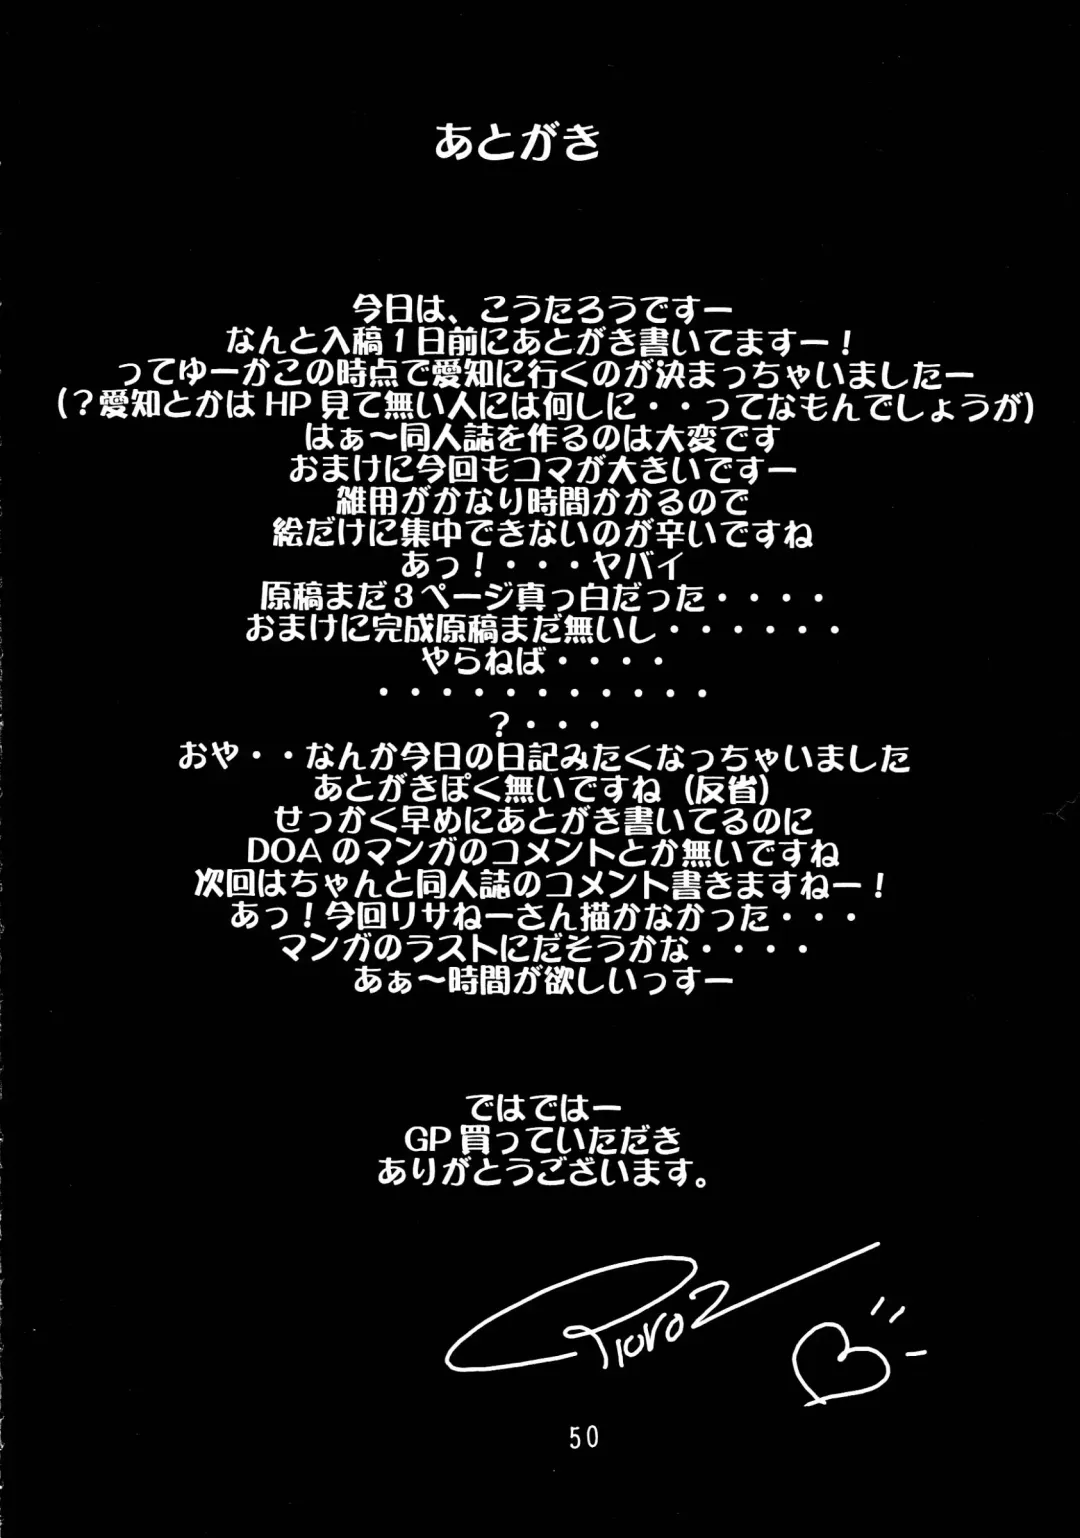 あとがき
今日は、こうたろうですー
なんと入稿1日前にあとがき書いてますー！
ってゆーかこの時点で愛知に行くのが決まっちゃいましたー
(？愛知とかは HP 見て無い人には何しに・・ってなもんでしょうが)
はぁ～同人誌を作るのは大変です
おまけに今回もコマが大きいですー
雑用がかなり時間かかるので
絵だけに集中できないのが辛いですね
あっ！・・・ヤバイ
原稿まだ3ページ真っ白だった・・・・
おまけに完成原稿まだ無いし・・・・・・
やらねば・・・・
・・・・・・・・・・・
？・・・
おや・・なんか今日の日記みたくなっちゃいました
あとがきぽく無いですね（反省）
せっかく早めにあとがき書いてるのに
DOAのマンガのコメントとか無いですね
次回はちゃんと同人誌のコメント書きますねー！
あっ！今回リサねーさん描かなかった・・・
マンガのラストにだそうかな・・・・
あぁ～時間が欲しいっすー
ではではー
GP 買っていただき
ありがとうございます。
50